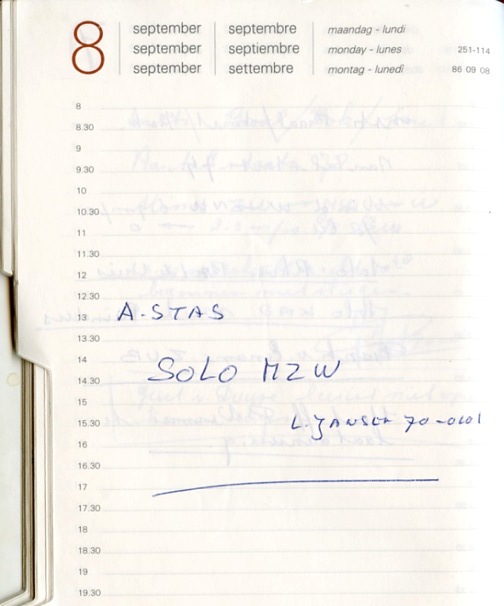 8
september septembre maandag - lundi
september septiembre monday - lunes 251-114
september settembre montag - lunedì 86 09 08
8
8.30
9
9.30
10
10.30
11
11.30
12
12.30
13 A. STAS
13.30
14 SOLO MZW
14.30
15
15.30 L. JANSEN 70-0001
16
16.30
17
17.30
18
18.30
19
19.30